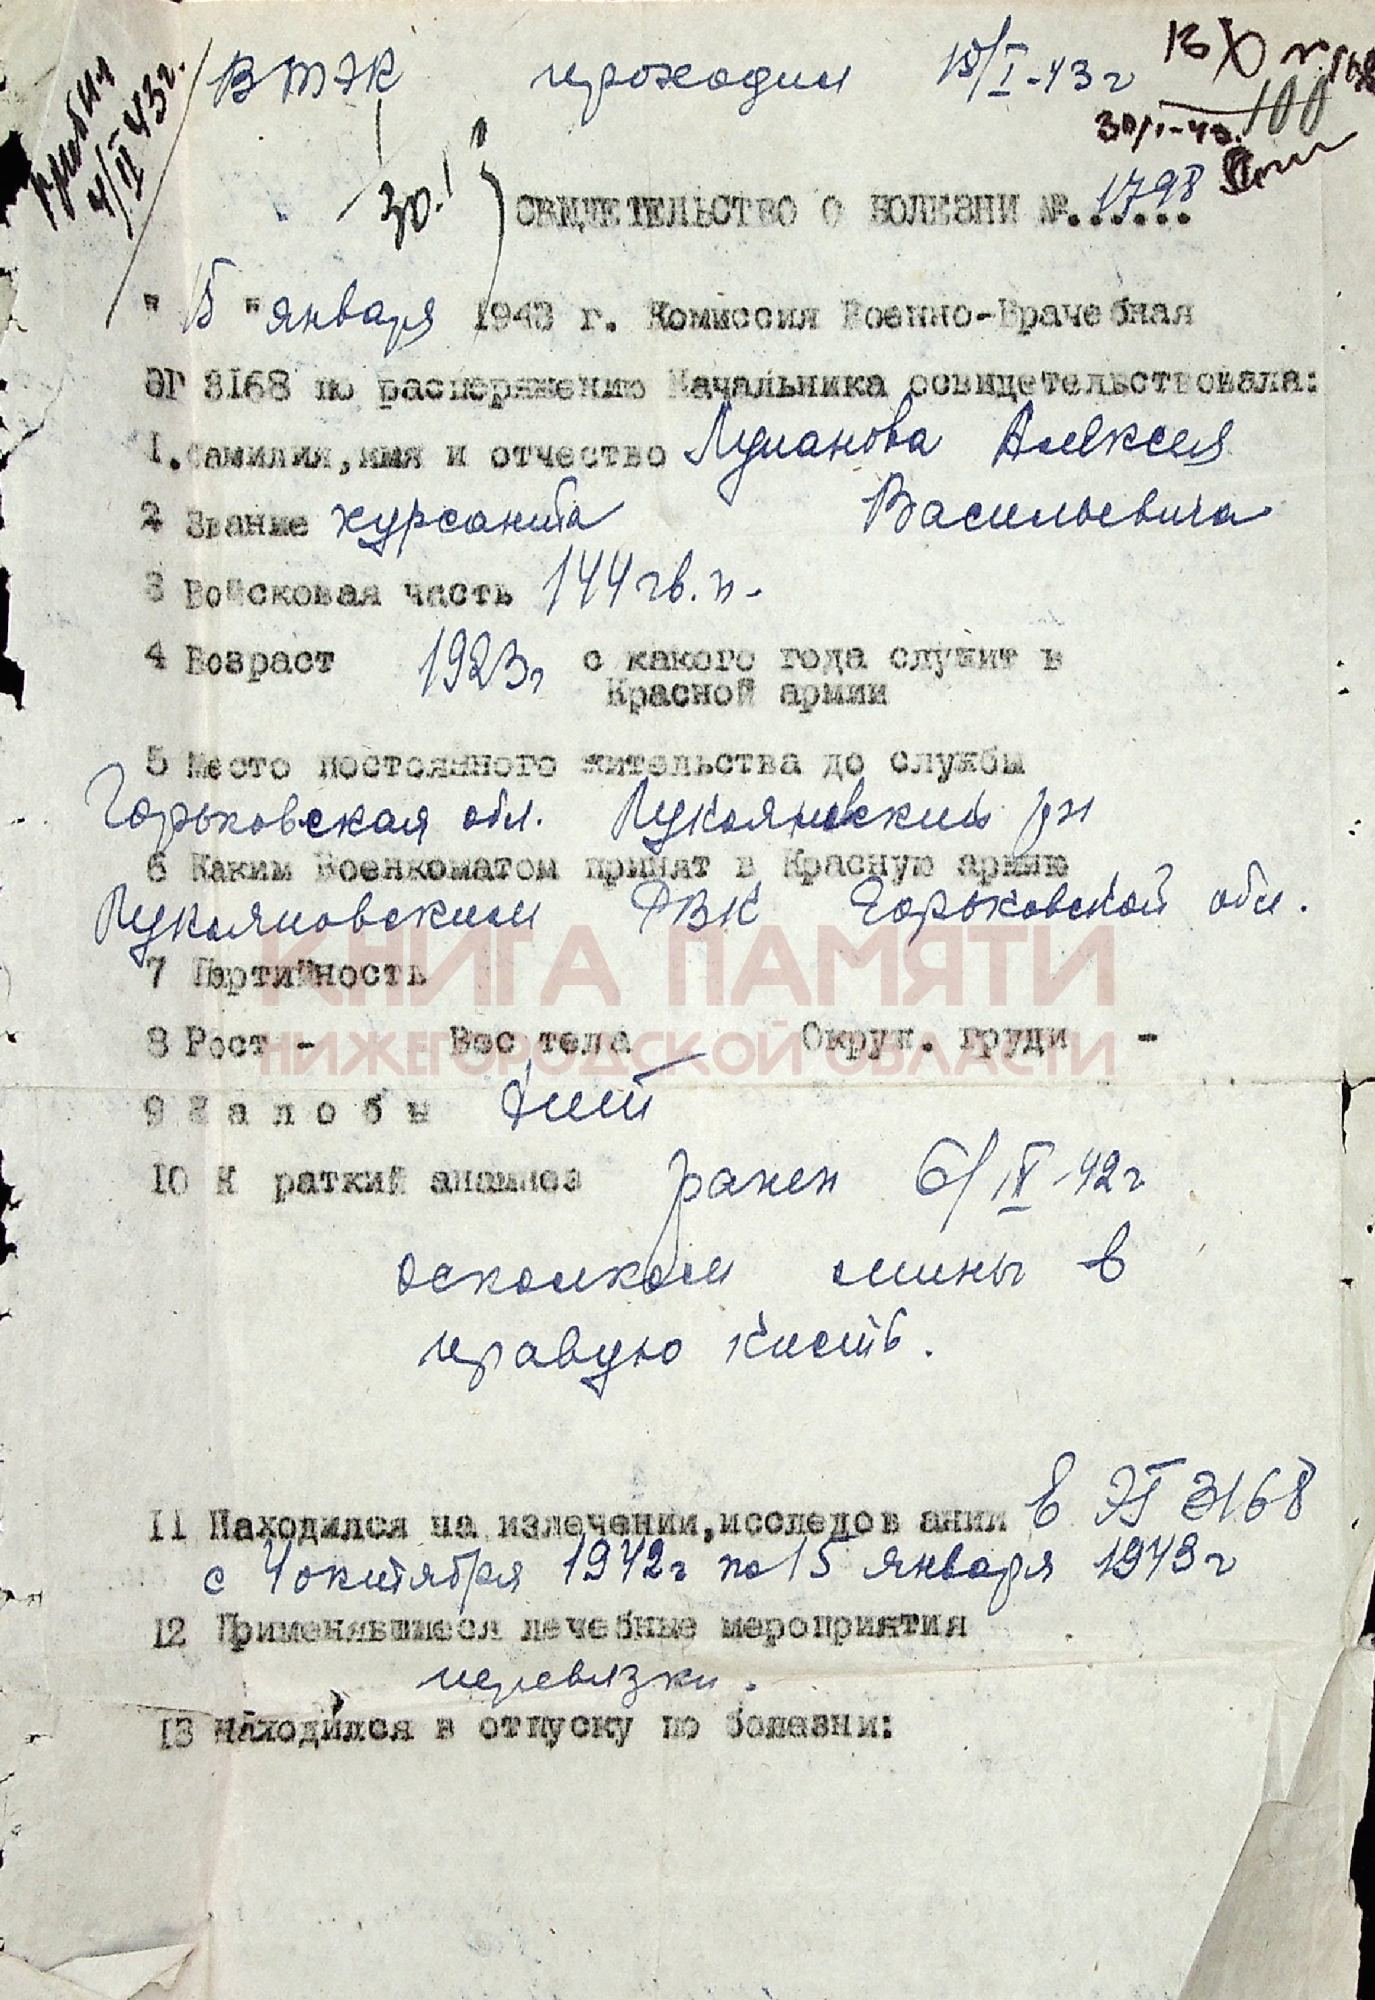 прибыл
4/II 43г.
ВТЭК проходил 15/I-43г
Вх N 168
30/I-43. 100
30.I
СВИДЕТЕЛЬСТВО О БОЛЕЗНИ №. 1798
" 15 " января 1943 г. Комиссия Военно-Врачебная
ЭГ 3168 по распоряжению Начальника освидетельствовала:
1. Фамилия, имя и отчество Луианова Алексея
Васильевича
2 Звание курсанта
3 Войсковая часть 144 гв. п-
4 Возраст 1923г с какого года служит в
Красной армии
5 Место постоянного жительства до службы
Горьковская обл. Лукояновский рн
6 Каким Военкоматом принят в Красную армию
Лукояновским РВК Горьковской обл.
КНИГА ПАМЯТИ
7 Партийность
НИЖЕГОРОДСКОЙ ОБЛАСТИ
8 Рост - Вес тела Окруж. груди -
9 Ж а л о б ы нет
10 К раткий анамнез ранен 6/IV-42г
осколком мины в
правую кисть.
11 Находился на излечении, исследов ании в ЭГ 3168
с 4 октября 1942г по 15 января 1943г
12 Применявшиеся лечебные мероприятия
перевязки.
13 Находился в отпуску по болезни: